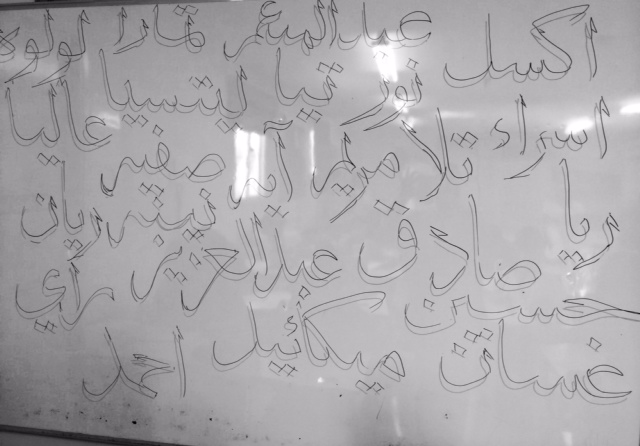 اكسل عبدالمنعم تمارا لولوة
نور تيا ليتسيا
اسراء تالا مريم آية صفية عاليا
ريا صادق عبدالعزيز نيتة ريان
حسين راي
غسان ميكائيل احمد